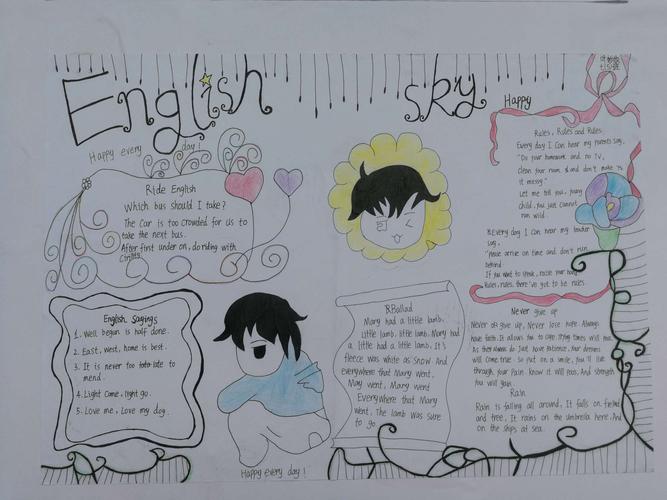 English sky
Happy every day!
Ride English
Which bus should I take?
The Car is too crowded for us to
take the next bus.
After first under on, do riding with
English Sayings
1. Well begun is half done.
2. East, west, home is best.
3. It is never too late to
mend.
4. Light come, light go.
5. Love me, Love my dog.
Happy every day!
Ballad
Mary had a little lamb,
Little lamb, little lamb, Mary had
a little had a little lamb, It's
fleece was white as snow And
everywhere that Mary went,
Mary went, Mary went
Everywhere that Mary
went, The lamb was sure
to go
Happy
Rules, Rules and Rules
Every day I Can hear my parents say,
"Do your homework and no TV,
Clean your room and don't make
it messy."
Let me tell you, young
child, you just cannot
run wild.
Every day I Can hear my teacher
say,
"please arrive on time and don't run
behind
If you want to speak, raise your hand
Rules, rules, there've got to be rules
Never give up
Never give up, Never lose hope. Always
have faith, It allows you to cope. Trying times will pass,
As they always do Just have patience, Your dreams
will come true. So put on a smile, you'll live
through your pain. Know it will pass, And strength
you will gain.
Rain
Rain is falling all around, It falls on field
and tree, It rains on the umbrella here, And
on the ships at sea.